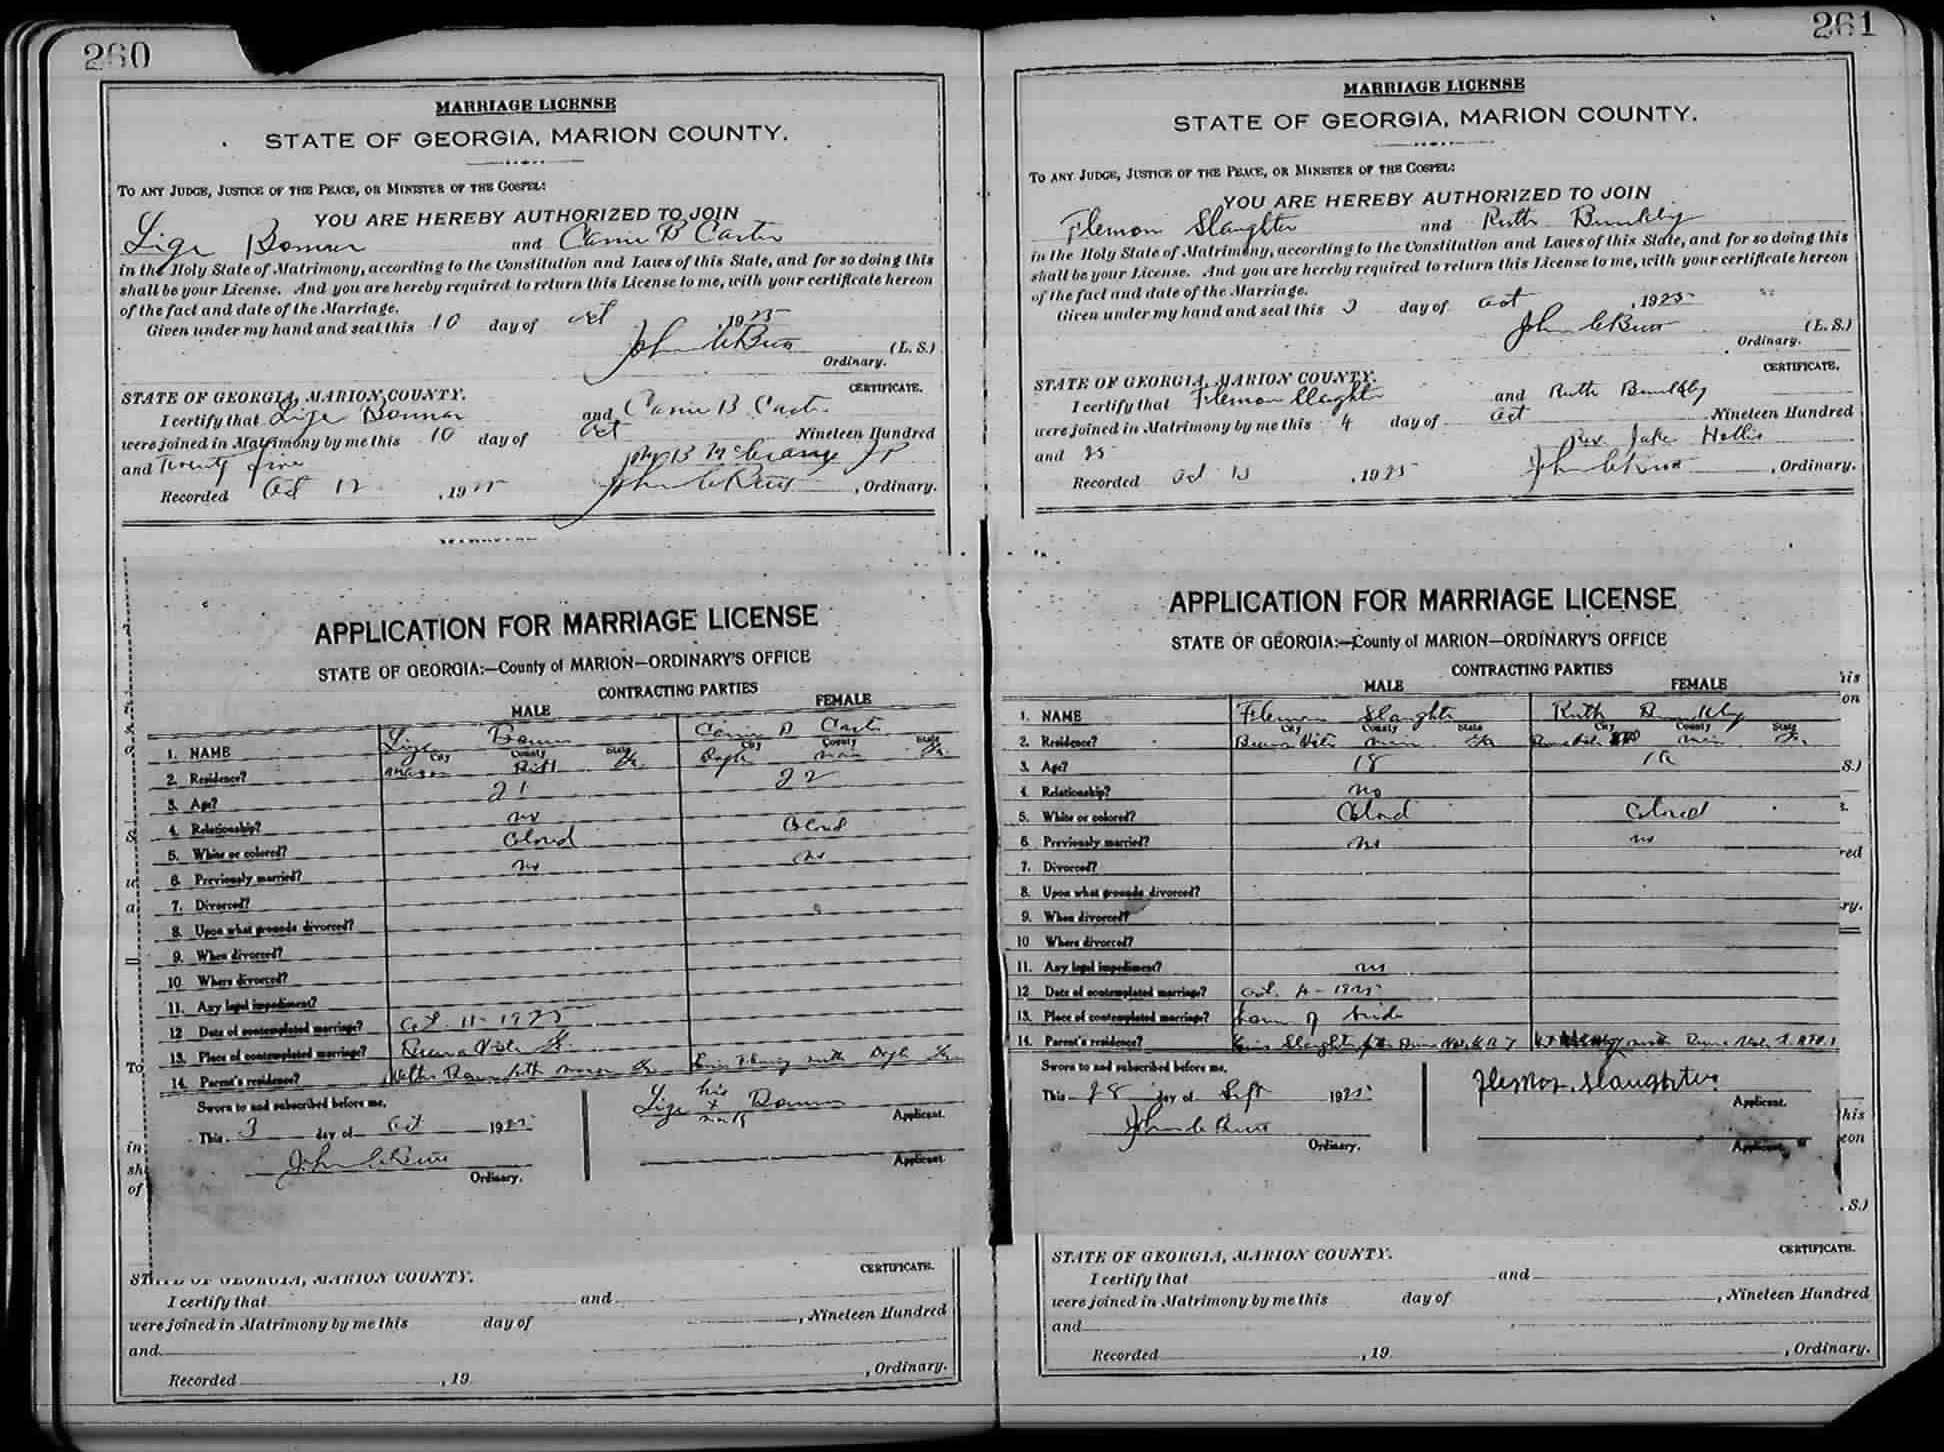 260
MARRIAGE LICENSE
STATE OF GEORGIA, MARION COUNTY.
TO ANY JUDGE, JUSTICE OF THE PEACE, OR MINISTER OF THE GOSPEL:
YOU ARE HEREBY AUTHORIZED TO JOIN
Lige and Carrie B Carter
in the Holy State of Matrimony, according to the Constitution and Laws of this State, and for so doing this
shall be your License. And you are hereby required to return this License to me, with your certificate hereon
of the fact and date of the Marriage.
Given under my hand and seal this 10 day of Oct 1925
John C Butt (L. S.)
Ordinary.
CERTIFICATE.
STATE OF GEORGIA, MARION COUNTY.
I certify that Lige and Carrie B Carter
were joined in Matrimony by me this 10 day of Oct Nineteen Hundred
and Twenty five J P
Recorded Oct 12, 1925 John C Butt, Ordinary.
APPLICATION FOR MARRIAGE LICENSE
STATE OF GEORGIA:—County of MARION—ORDINARY'S OFFICE
CONTRACTING PARTIES
MALE FEMALE
1. NAME Lige Carrie B Carter
City County State City County State
2. Residence? Ga. Ga.
3. Age? 21 22
4. Relationship? no
5. White or colored? Colored Colored
6. Previously married? no no
7. Divorced?
8. Upon what grounds divorced?
9. When divorced?
10 Where divorced?
11. Any legal impediment?
12 Date of contemplated marriage? Oct. 11- 1925
13. Place of contemplated marriage? Buena Vista Ga.
14. Parent's residence?
Sworn to and subscribed before me,
This 3 day of Oct 1925
John C Butt
Ordinary.
Lige his x mark
Applicant.
Applicant.
CERTIFICATE.
STATE OF GEORGIA, MARION COUNTY.
I certify that and
were joined in Matrimony by me this day of , Nineteen Hundred
and
Recorded , 19 , Ordinary.
261
MARRIAGE LICENSE
STATE OF GEORGIA, MARION COUNTY.
TO ANY JUDGE, JUSTICE OF THE PEACE, OR MINISTER OF THE GOSPEL:
YOU ARE HEREBY AUTHORIZED TO JOIN
Flemon Slaughter and Ruth
in the Holy State of Matrimony, according to the Constitution and Laws of this State, and for so doing this
shall be your License. And you are hereby required to return this License to me, with your certificate hereon
of the fact and date of the Marriage.
Given under my hand and seal this 3 day of Oct , 1925
John C Butt (L. S.)
Ordinary.
CERTIFICATE.
STATE OF GEORGIA, MARION COUNTY.
I certify that Flemon Slaughter and Ruth
were joined in Matrimony by me this 4 day of Oct Nineteen Hundred
and 25 Rev Jake Hollis
Recorded Oct , 1925 John C Butt, Ordinary.
APPLICATION FOR MARRIAGE LICENSE
STATE OF GEORGIA:—County of MARION—ORDINARY'S OFFICE
CONTRACTING PARTIES
MALE FEMALE
1. NAME Flemon Slaughter Ruth
City County State City County State
2. Residence? Buena Vista Ga Buena Vista Ga.
3. Age? 18
4. Relationship? no
5. White or colored? Colored Colored
6. Previously married? no no
7. Divorced?
8. Upon what grounds divorced?
9. When divorced?
10 Where divorced?
11. Any legal impediment? no
12 Date of contemplated marriage? Oct. 4 - 1925
13. Place of contemplated marriage? home of bride
14. Parent's residence? Slaughter
Sworn to and subscribed before me,
This 28 day of Sept 1925
John C Butt
Ordinary.
Flemon Slaughter
Applicant.
Applicant.
CERTIFICATE.
STATE OF GEORGIA, MARION COUNTY.
I certify that and
were joined in Matrimony by me this day of , Nineteen Hundred
and
Recorded , 19 , Ordinary.